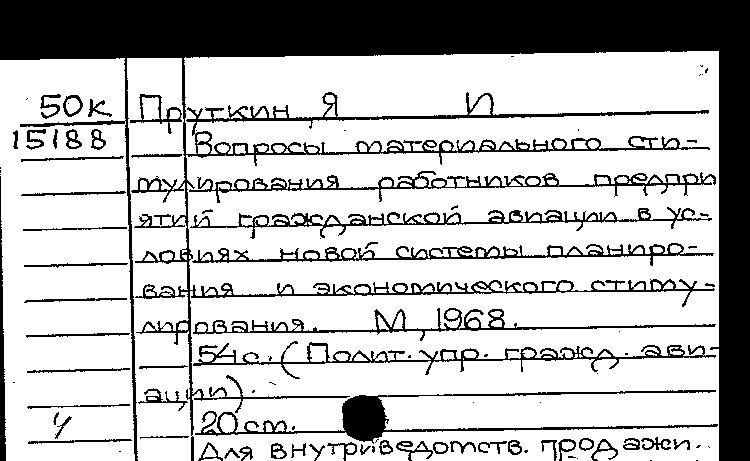 50к Пруткин, Я И
15188 Вопросы материального сти-
мулирования работников предпри
ятий гражданской авиации в ус-
ловиях новой системы планиро-
вания и экономического стиму-
лирования. М, 1968.
54с. (Полит. упр. гражд. ави-
ации).
20 cm.
Для внутриведомств. продажи.